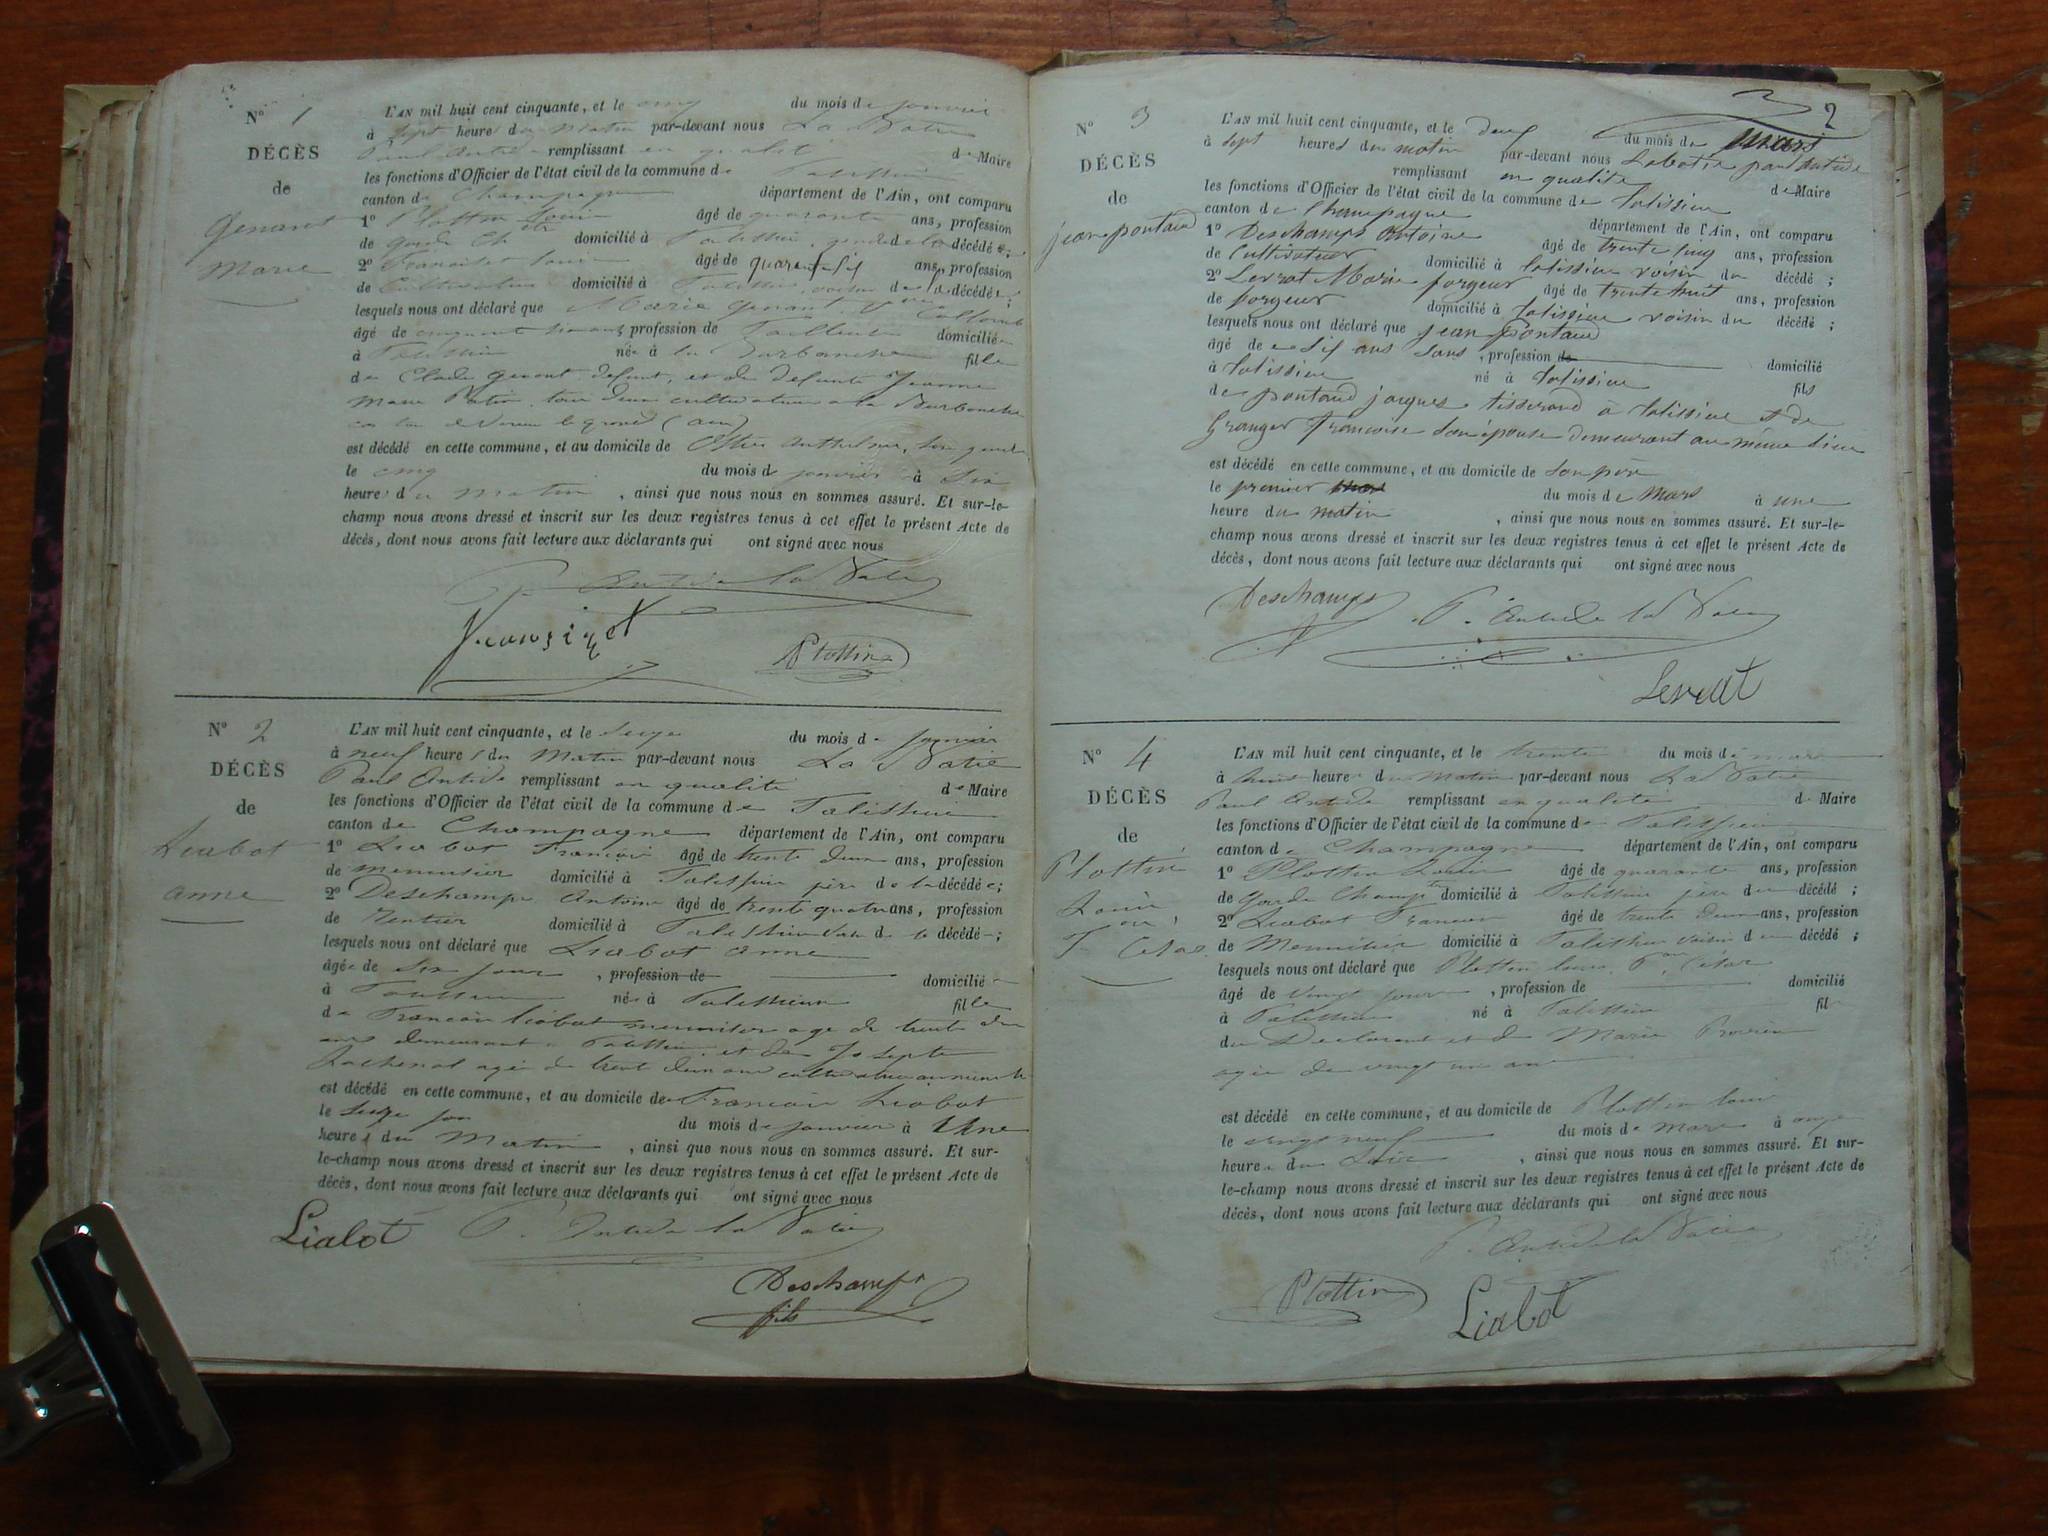 N° 1
DÉCÈS
de
Genant
Marie
L'AN mil huit cent cinquante, et le cinq du mois de janvier
à sept heure du matin par-devant nous La Batie
Paul Antide remplissant en qualité de Maire
les fonctions d'Officier de l'état civil de la commune de Talissieu
canton de Champagne département de l'Ain, ont comparu
1° Plottin Louis âgé de quarante ans, profession
de garde Ch domicilié à Talissieu, de la décédée;
2° Louis âgé de quarante six ans, profession
de Cultivateur domicilié à Talissieu voisin de la décédée;
lesquels nous ont déclaré que Marie Genant
âgé de profession de domiciliée
à Talissieu née à la Burbanche fille
de Claude Genant défunt, et de défunte Jeanne
Marie cultivateurs a la Burbanche
(ain)
est décédé en cette commune, et au domicile de Anthelme, son gendre
le cinq du mois de janvier à six
heure du matin, ainsi que nous nous en sommes assuré. Et sur-le-
champ nous avons dressé et inscrit sur les deux registres tenus à cet effet le présent Acte de
décès, dont nous avons fait lecture aux déclarants qui ont signé avec nous
P. Antide la Batie
Plottin
N° 2
DÉCÈS
de
Liabot
anne
L'AN mil huit cent cinquante, et le seize du mois de janvier
à neuf heures du Matin par-devant nous La Batie
Paul Antide remplissant en qualité de Maire
les fonctions d'Officier de l'état civil de la commune de Talissieu
canton de Champagne département de l'Ain, ont comparu
1° Liabot François âgé de trente deux ans, profession
de menuisier domicilié à Talissieu père de la décédée;
2° Deschamps Antoine âgé de trente quatre ans, profession
de Rentier domicilié à Talissieu de la décédée;
lesquels nous ont déclaré que Liabot anne
âgée de six jour, profession de domiciliée
à Talissieu née à Talissieu fille
de François Liabot menuisier agé de trente deux
ans demeurant a Talissieu, et de Josepte
agée de trente deux ans
est décédé en cette commune, et au domicile de François Liabot
le seize du mois de janvier à Une
heure du Matin, ainsi que nous nous en sommes assuré. Et sur-
le-champ nous avons dressé et inscrit sur les deux registres tenus à cet effet le présent Acte de
décès, dont nous avons fait lecture aux déclarants qui ont signé avec nous
Liabot P. Antide la Batie
Deschamps
fils
2
N° 3
DÉCÈS
de
jean pontaud
L'AN mil huit cent cinquante, et le deux du mois de mars
à sept heures du matin par-devant nous Labatie paul antide
remplissant en qualité de Maire
les fonctions d'Officier de l'état civil de la commune de talissieu
canton de Champagne département de l'Ain, ont comparu
1° Deschamps Antoine âgé de trente cinq ans, profession
de Cultivateur domicilié à talissieu voisin du décédé;
2° Levrat Marie forgeur âgé de trente huit ans, profession
de forgeur domicilié à talissieu voisin du décédé;
lesquels nous ont déclaré que jean pontaud
âgé de six ans sans, profession de domicilié
à talissieu né à talissieu fils
de pontaud jacques tisserand à talissieu & de
Granger françoise son épouse demeurant au même lieu
est décédé en cette commune, et au domicile de son père
le premier mars du mois de mars à une
heure du matin, ainsi que nous nous en sommes assuré. Et sur-le-
champ nous avons dressé et inscrit sur les deux registres tenus à cet effet le présent Acte de
décès, dont nous avons fait lecture aux déclarants qui ont signé avec nous
Deschamps P. Antide la Batie
Levrat
N° 4
DÉCÈS
de
Plottin
Louis
L'AN mil huit cent cinquante, et le trente du mois de mars
à huit heure du Matin par-devant nous La Batie
Paul Antide remplissant en qualité de Maire
les fonctions d'Officier de l'état civil de la commune de Talissieu
canton de Champagne département de l'Ain, ont comparu
1° Plottin Louis âgé de quarante ans, profession
de Garde Champtre domicilié à Talissieu père du décédé;
2° Liabot François âgé de trente deux ans, profession
de Menuisier domicilié à Talissieu voisin du décédé;
lesquels nous ont déclaré que Plottin louis
âgé de vingt jours, profession de domicilié
à Talissieu né à Talissieu fil
du Declarant et de Marie
agée de vingt un ans
est décédé en cette commune, et au domicile de Plottin louis
le vingt neuf du mois de mars à onze
heure du Soir, ainsi que nous nous en sommes assuré. Et sur-
le-champ nous avons dressé et inscrit sur les deux registres tenus à cet effet le présent Acte de
décès, dont nous avons fait lecture aux déclarants qui ont signé avec nous
P. Antide la Batie
Plottin Liabot